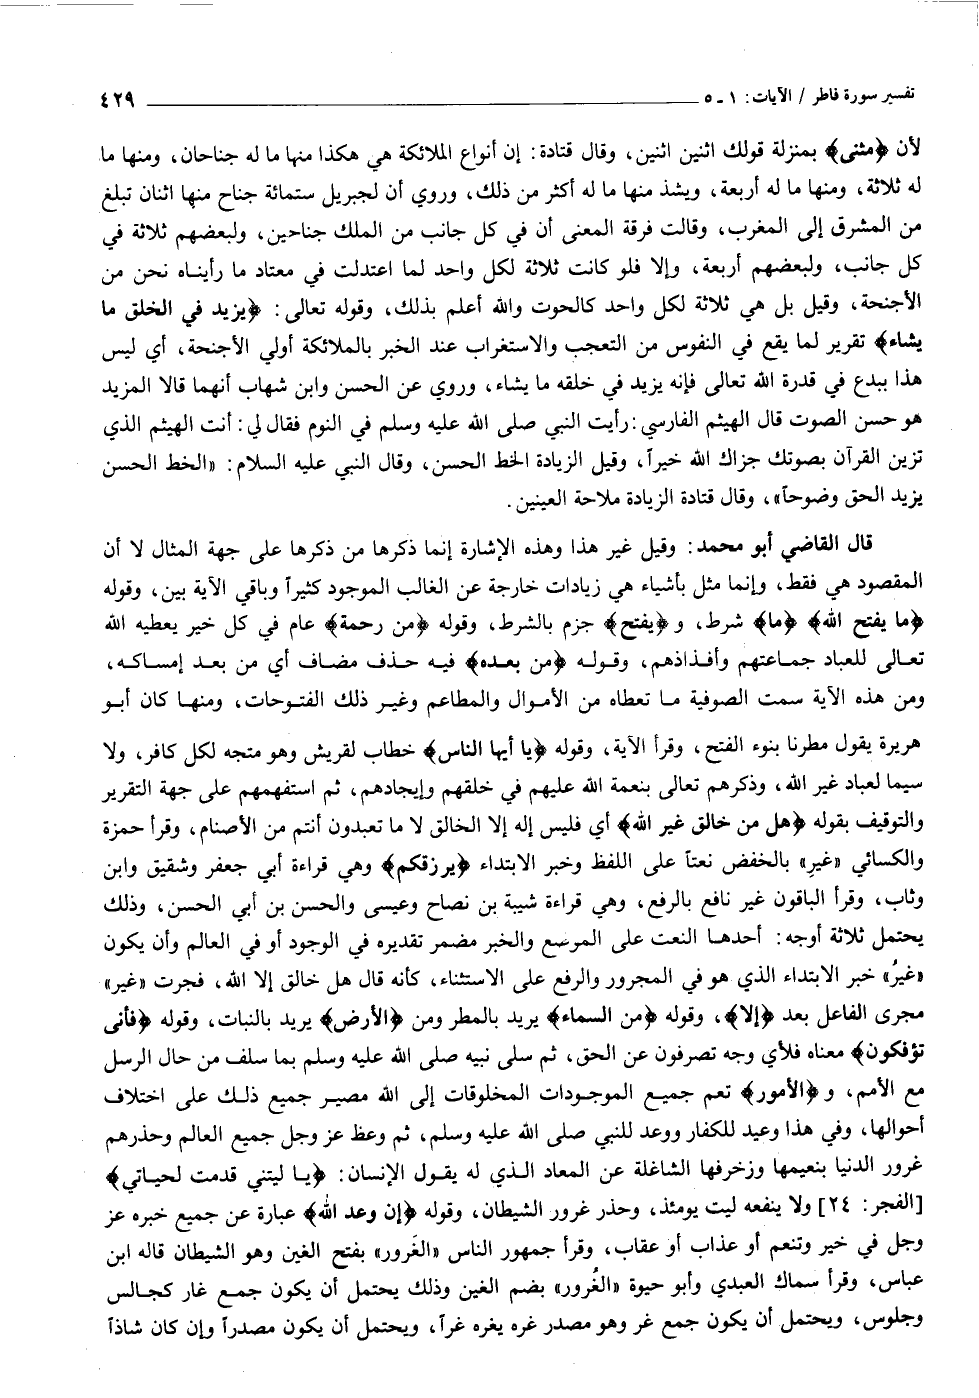 تفسير سورة فاطر / الآيات: ١ ـ ٥ ٤٢٩
لأن ﴿مثنى﴾ بمنزلة قولك اثنين اثنين، وقال قتادة: إن أنواع الملائكة هي هكذا منها ما له جناحان، ومنها ما
له ثلاثة، ومنها ما له أربعة، ويشذ منها ما له أكثر من ذلك، وروي أن لجبريل ستمائة جناح منها اثنان تبلغ
من المشرق إلى المغرب، وقالت فرقة المعنى أن في كل جانب من الملك جناحين، ولبعضهم ثلاثة في
كل جانب، ولبعضهم أربعة، وإلا فلو كانت ثلاثة لكل واحد لما اعتدلت في معتاد ما رأيناه نحن من
الأجنحة، وقيل بل هي ثلاثة لكل واحد كالحوت والله أعلم بذلك، وقوله تعالى: ﴿يزيد في الخلق ما
يشاء﴾ تقرير لما يقع في النفوس من التعجب والاستغراب عند الخبر بالملائكة أولي الأجنحة، أي ليس
هذا ببدع في قدرة الله تعالى فإنه يزيد في خلقه ما يشاء، وروي عن الحسن وابن شهاب أنهما قالا المزيد
هو حسن الصوت قال الهيثم الفارسي: رأيت النبي صلى الله عليه وسلم في النوم فقال لي: أنت الهيثم الذي
تزين القرآن بصوتك جزاك الله خيراً، وقيل الزيادة الخط الحسن، وقال النبي عليه السلام: «الخط الحسن
يزيد الحق وضوحاً»، وقال قتادة الزيادة ملاحة العينين.
قال القاضي أبو محمد: وقيل غير هذا وهذه الإشارة إنما ذكرها من ذكرها على جهة المثال لا أن
المقصود هي فقط، وإنما مثل بأشياء هي زيادات خارجة عن الغالب الموجود كثيراً وباقي الآية بين، وقوله
﴿ما يفتح الله﴾ ﴿ما﴾ شرط، و﴿يفتح﴾ جزم بالشرط، وقوله ﴿من رحمة﴾ عام في كل خير يعطيه الله
تعالى للعباد جماعتهم وأفذاذهم، وقوله ﴿من بعده﴾ فيه حذف مضاف أي من بعد إمساكه،
ومن هذه الآية سمت الصوفية ما تعطاه من الأموال والمطاعم وغير ذلك الفتوحات، ومنها كان أبو
هريرة يقول مطرنا بنوء الفتح، وقرأ الآية، وقوله ﴿يا أيها الناس﴾ خطاب لقريش وهو متجه لكل كافر، ولا
سيما لعباد غير الله، وذكرهم تعالى بنعمة الله عليهم في خلقهم وإيجادهم، ثم استفهمهم على جهة التقرير
والتوقيف بقوله ﴿هل من خالق غير الله﴾ أي فليس إله إلا الخالق لا ما تعبدون أنتم من الأصنام، وقرأ حمزة
والكسائي «غيرِ» بالخفض نعتاً على اللفظ وخبر الابتداء ﴿يرزقكم﴾ وهي قراءة أبي جعفر وشقيق وابن
وثاب، وقرأ الباقون غير نافع بالرفع، وهي قراءة شيبة بن نصاح وعيسى والحسن بن أبي الحسن، وذلك
يحتمل ثلاثة أوجه: أحدها النعت على الموضع والخبر مضمر تقديره في الوجود أو في العالم وأن يكون
«غيرُ» خبر الابتداء الذي هو في المجرور والرفع على الاستثناء، كأنه قال هل خالق إلا الله، فجرت «غير»
مجرى الفاعل بعد ﴿إلا﴾، وقوله ﴿من السماء﴾ يريد بالمطر ومن ﴿الأرض﴾ يريد بالنبات، وقوله ﴿فأنى
تؤفكون﴾ معناه فلأي وجه تصرفون عن الحق، ثم سلى نبيه صلى الله عليه وسلم بما سلف من حال الرسل
مع الأمم، و﴿الأمور﴾ تعم جميع الموجودات المخلوقات إلى الله مصير جميع ذلك على اختلاف
أحوالها، وفي هذا وعيد للكفار ووعد للنبي صلى الله عليه وسلم، ثم وعظ عز وجل جميع العالم وحذرهم
غرور الدنيا بنعيمها وزخرفها الشاغلة عن المعاد الذي له يقول الإنسان: ﴿يا ليتني قدمت لحياتي﴾
[الفجر: ٢٤] ولا ينفعه ليت يومئذ، وحذر غرور الشيطان، وقوله ﴿إن وعد الله﴾ عبارة عن جميع خبره عز
وجل في خير وتنعم أو عذاب أو عقاب، وقرأ جمهور الناس «الغَرور» بفتح الغين وهو الشيطان قاله ابن
عباس، وقرأ سماك العبدي وأبو حيوة «الغُرور» بضم الغين وذلك يحتمل أن يكون جمع غار كجالس
وجلوس، ويحتمل أن يكون جمع غر وهو مصدر غره يغره غراً، ويحتمل أن يكون مصدراً وإن كان شاذاً